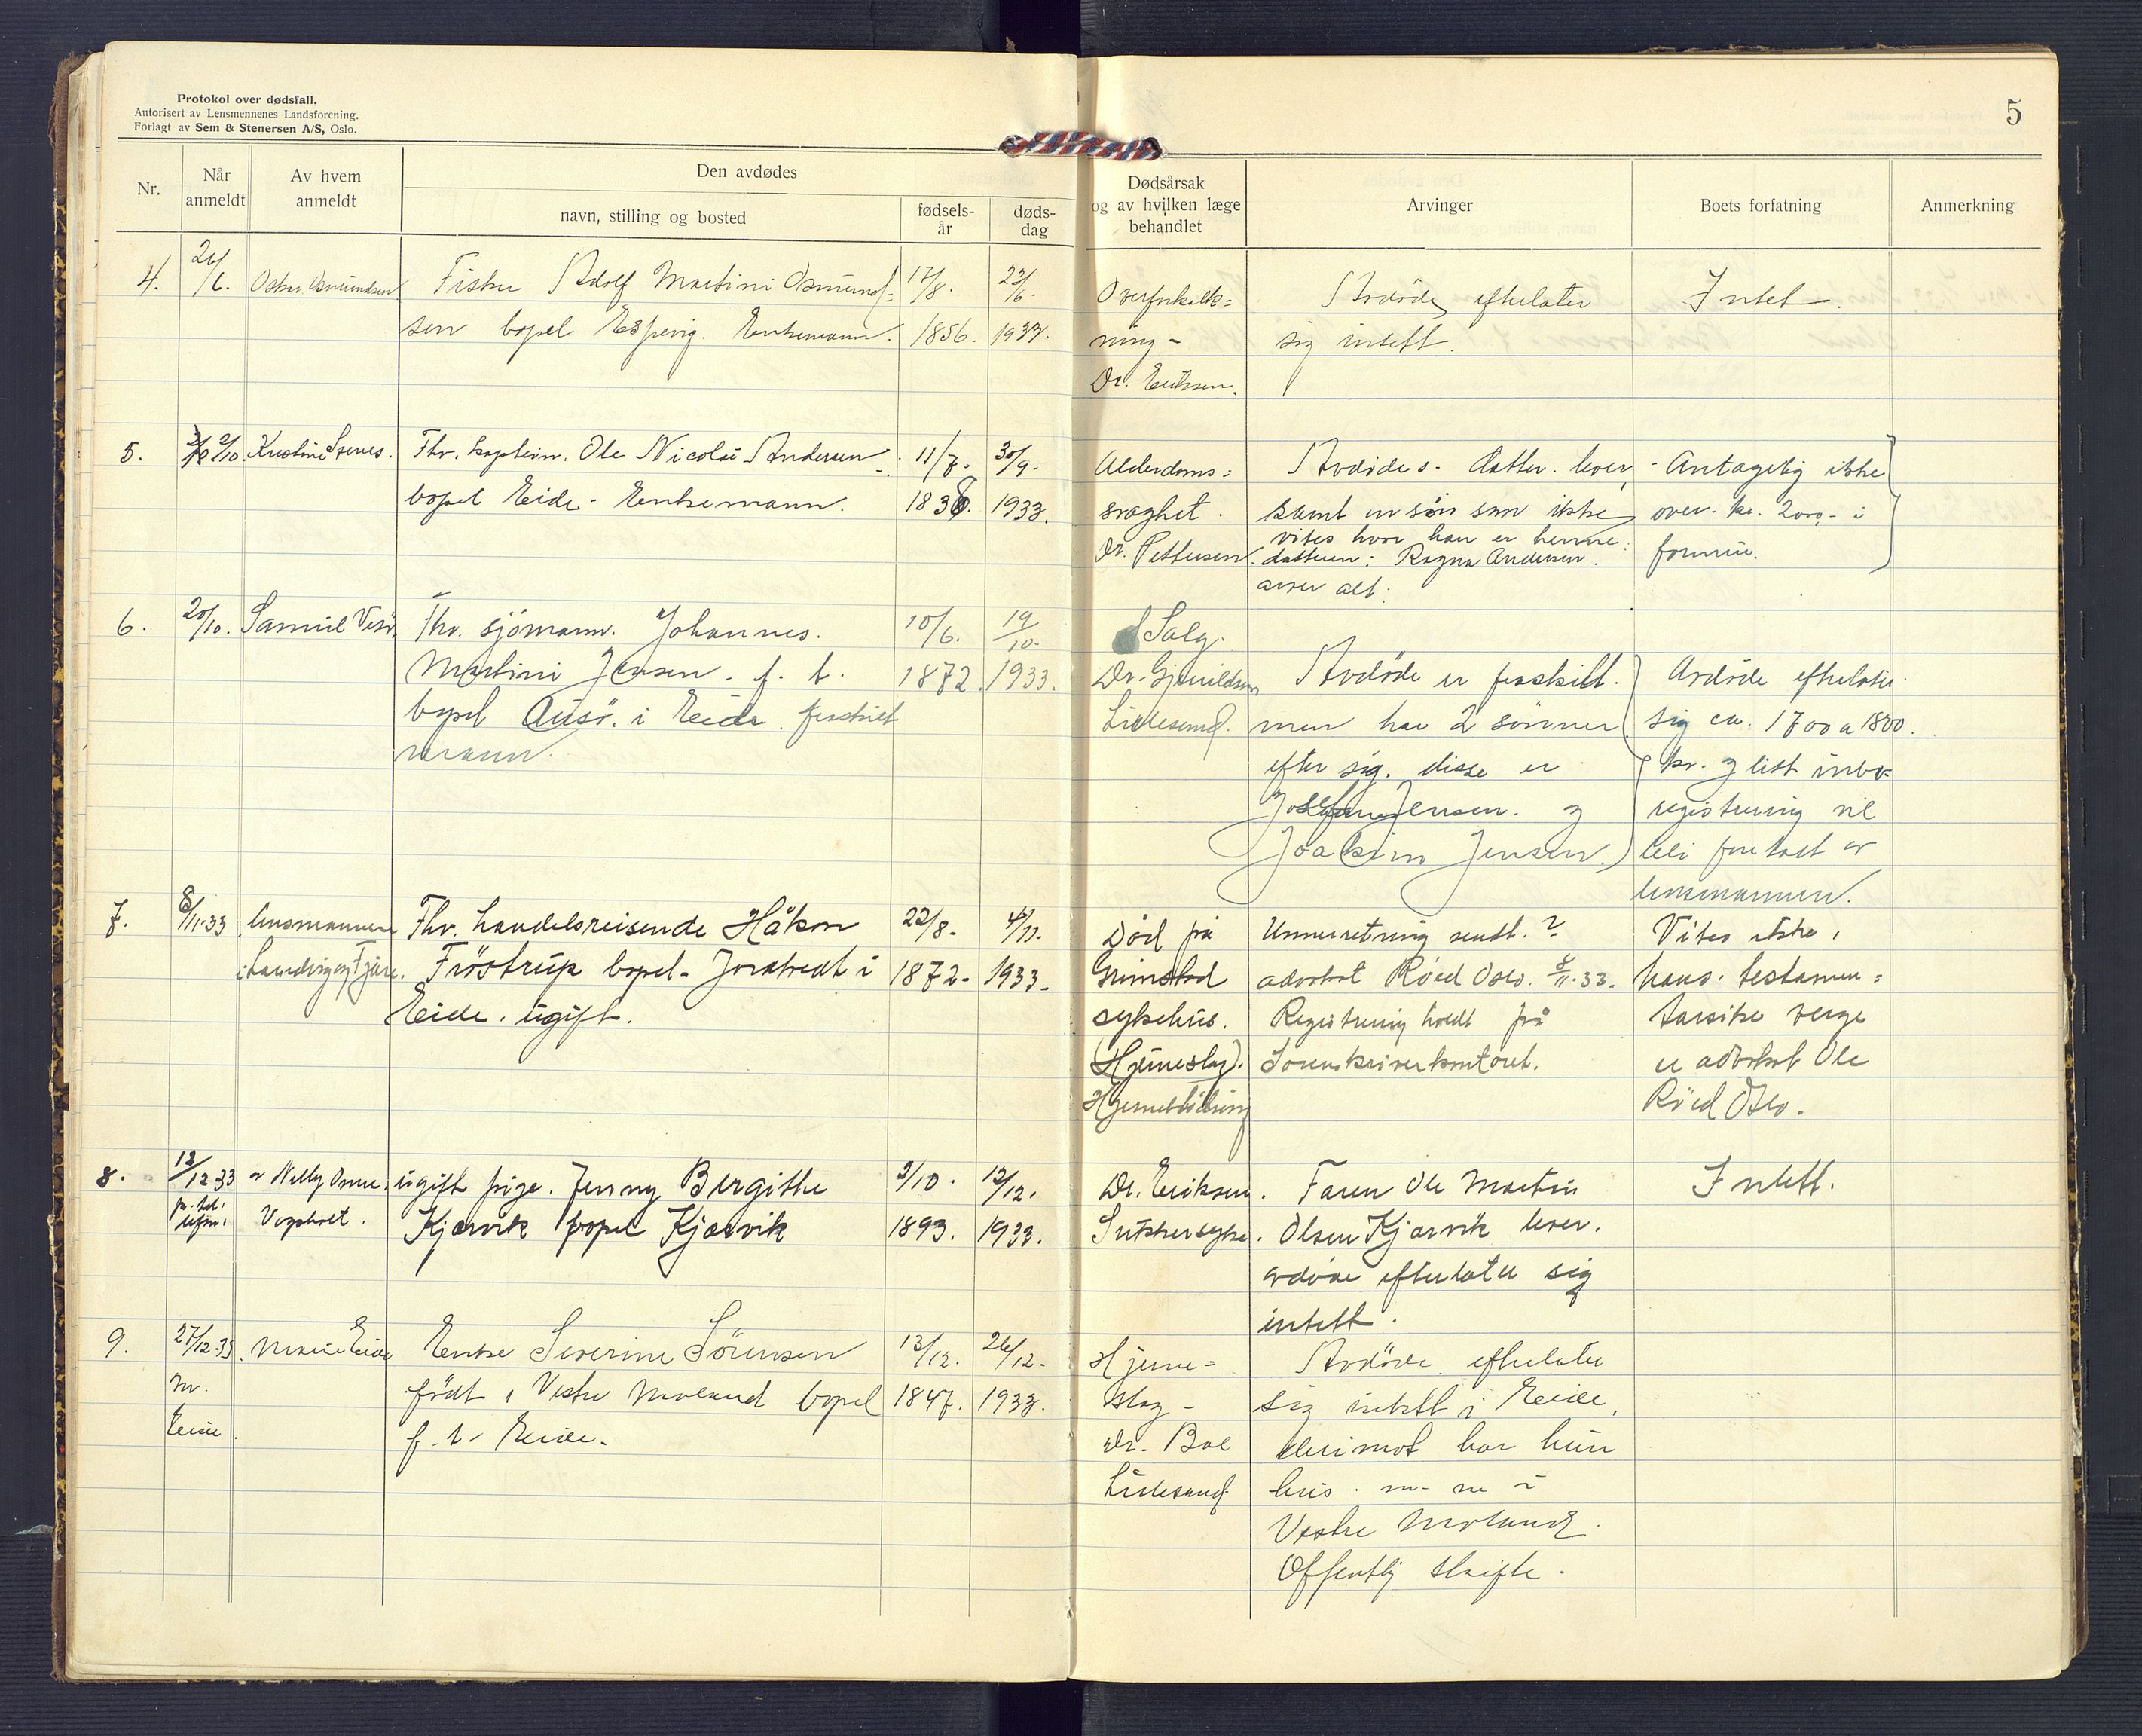 Protokol over dødsfall.
Autorisert av Lensmennenes Landsforening.
Forlagt av Sem & Stenersen A/S, Oslo.
5
Nr.
Når anmeldt
Av hvem anmeldt
Den avdødes
navn, stilling og bosted
fødsels-år
døds-dag
Dødsårsak og av hvilken læge behandlet
Arvinger
Boets forfatning
Anmerkning
4.
Osmundsen
Fisker Adolf Martini Osmund-
sen bopel Espevig. Enkemann.
17/8.
1856.
23/6.
1933.
Overforkalk=
ning -
Dr. Eriksen.
Avdøde efterlater
sig intett.
Intet.
5.
2/10.
Kristine
Fhv. kaptein. Ole Nicolai Andersen
bopel Eide - Enkemann.
11/7.
1838.
30/9.
1933.
Alderdoms=
svaghet.
Dr. Pettersen.
Avdødes - datter lever,
samt en søn som ikke
vites hvor han er henne.
datteren: Ragna Andersen.
arver alt.
Antagelig ikke
over kr. 2000,- i
formue.
6.
20/10.
Samuel
Fhv. sjömann. Johannes.
Martini Jensen - f. t.
bopel Ausö. i Eide. fraskilt
mann.
10/6.
1872.
19/10.
1933.
Salg.
Dr.
Lillesand.
Avdöde er fraskilt.
men har 2 sönner
efter sig. disse er
Jensen. og
Joakim Jensen.
Avdöde efterlater
sig ca. 1700 a 1800.
kr. og litt inbo-
registrering vil
bli foretatt av
lensmannen.
7.
8/11-33
lensmannen
i Landvig og Fjære.
Fhv. handelsreisende Håkon
Fröstrup bopel -
i
Eide. ugift.
22/8-
1872-
4/11-
1933-
Död på
Grimstad
sykehus.
(Hjerneslag).
Hjerneblödning
Underretning sendt.
advokat Röed Oslo. 8/11-33.
Registrering holdt på
Sorenskriverkontoret.
Vites ikke,
hans testamen=
tariske verge
er advokat Ole
Röed Oslo.
8.
12/12 33
pr. tel.
Nelly
Vogsholt.
ugift pige. Jenny Bergithe
Kjørvik bopel Kjørvik
2/10.
1893.
12/12.
1933.
Dr. Eriksen.
Sukkersyke.
Faren Ole Martin
Olsen Kjørvik lever.
avdöde efterlater sig
intett.
Intett.
9.
27/12-33.
Marie Eide
Eide
Enke Severine Sörensen
födt i Vestre Moland bopel
f. t. Eide.
13/12.
1847.
26/12-
1933.
Hjerne=
slag -
Dr. Boe
Lillesand.
Avdöde efterlater
sig intett i Eide,
derimot har hun
hus m. m. i
Vestre Moland.
Offentlig skifte.